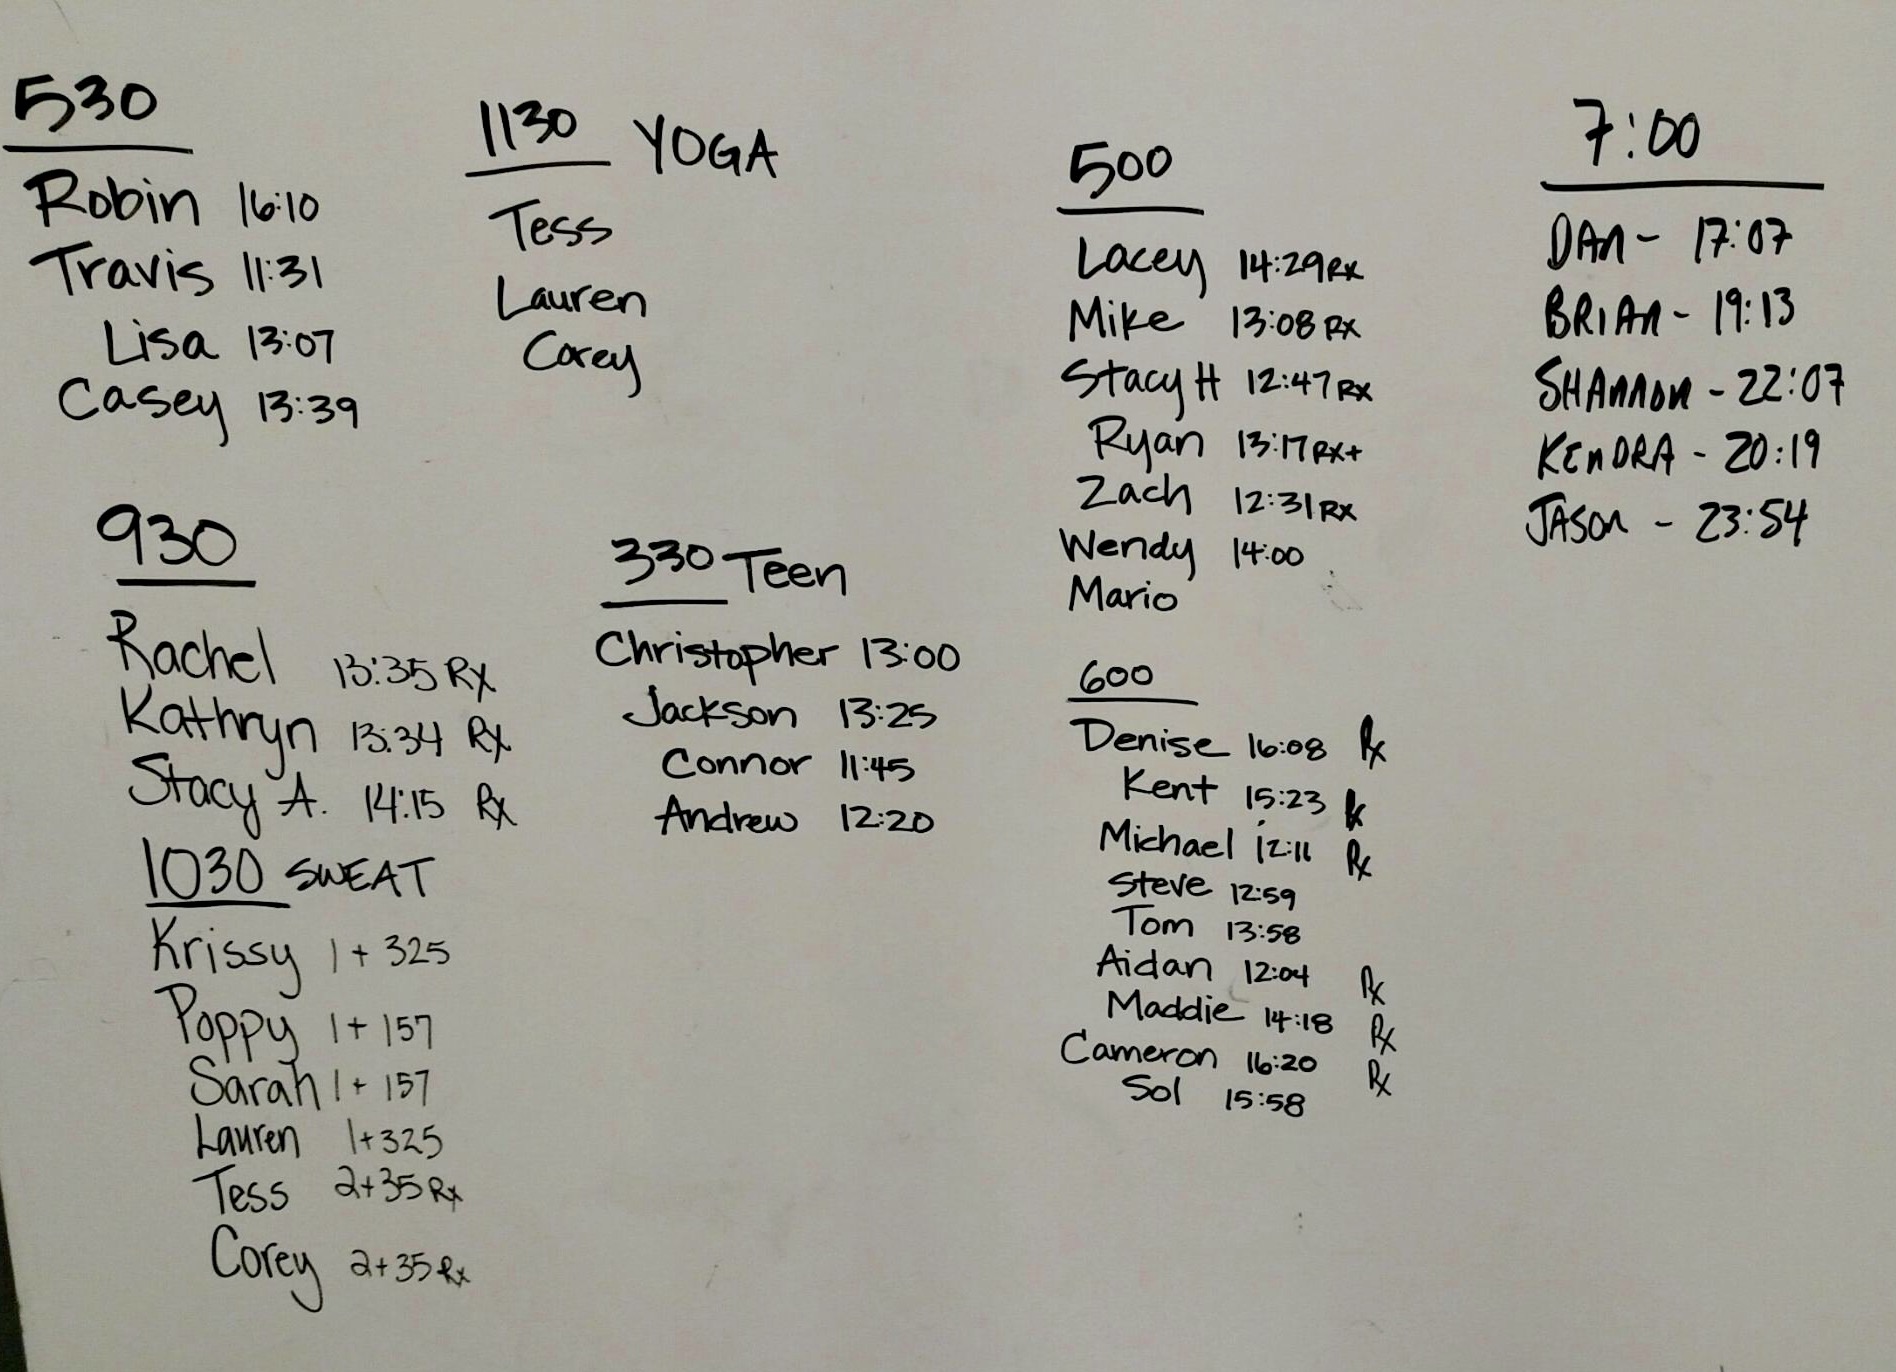 530
Robin 16:10
Travis 11:31
Lisa 13:07
Casey 13:39
930
Rachel 13:35 Rx
Kathryn 13:34 Rx
Stacy A. 14:15 Rx
1030 SWEAT
Krissy 1+325
Poppy 1+157
Sarah 1+157
Lauren 1+325
Tess 2+35 Rx
Corey 2+35 Rx
1130 YOGA
Tess
Lauren
Corey
330 Teen
Christopher 13:00
Jackson 13:25
Connor 11:45
Andrew 12:20
500
Lacey 14:29 Rx
Mike 13:08 Rx
Stacy H 12:47 Rx
Ryan 13:17 Rx+
Zach 12:31 Rx
Wendy 14:00
Mario
600
Denise 16:08 Rx
Kent 15:23 Rx
Michael 12:11 Rx
Steve 12:59
Tom 13:58
Aidan 12:04 Rx
Maddie 14:18 Rx
Cameron 16:20 Rx
Sol 15:58
7:00
DAN - 17:07
BRIAN - 19:13
SHANNON - 22:07
KENDRA - 20:19
JASON - 23:54